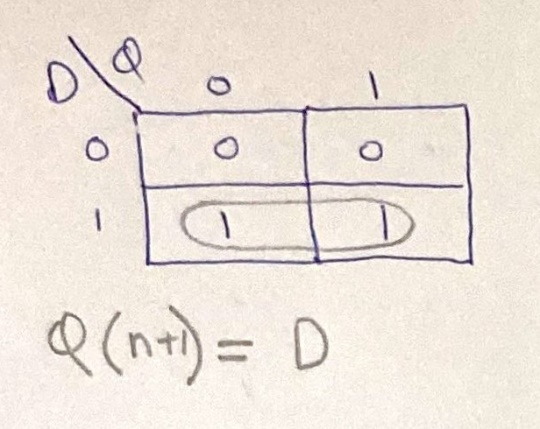 D \ Q 0 1
0 0 0
1 1 1
Q(n+1) = D